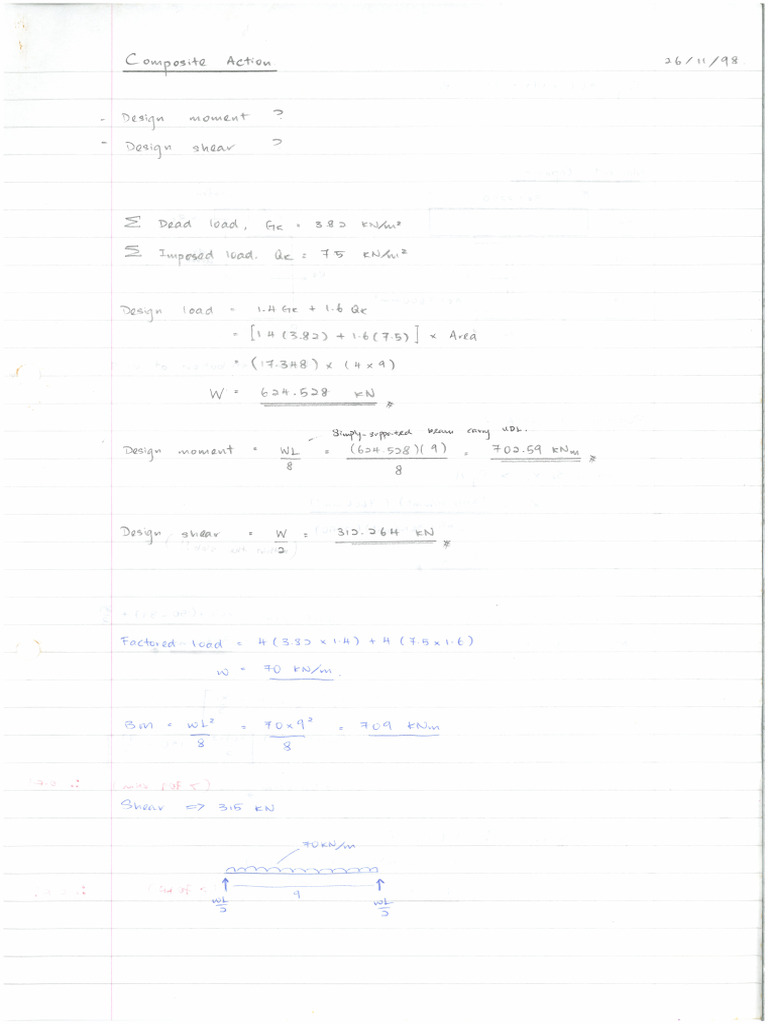 Composite Action 26/11/98
- Design moment ?
- Design shear ?
Σ Dead load, Gk = 3.82 kN/m²
Σ Imposed load. Qk = 7.5 kN/m²
Design load = 1.4 Gk + 1.6 Qk
= [1.4 (3.82) + 1.6 (7.5)] × Area
= (17.348) × (4 × 9)
W = 624.528 kN *
Simply-supported beam carry UDL.
Design moment = WL/8 = (624.528)(9)/8 = 702.59 kNm *
Design shear = W/2 = 312.264 kN *
Factored load = 4 (3.82 × 1.4) + 4 (7.5 × 1.6)
w = 70 kN/m.
BM = wL²/8 = 70 × 9²/8 = 709 kNm
Shear => 315 kN
70 kN/m
9
wL/2 wL/2